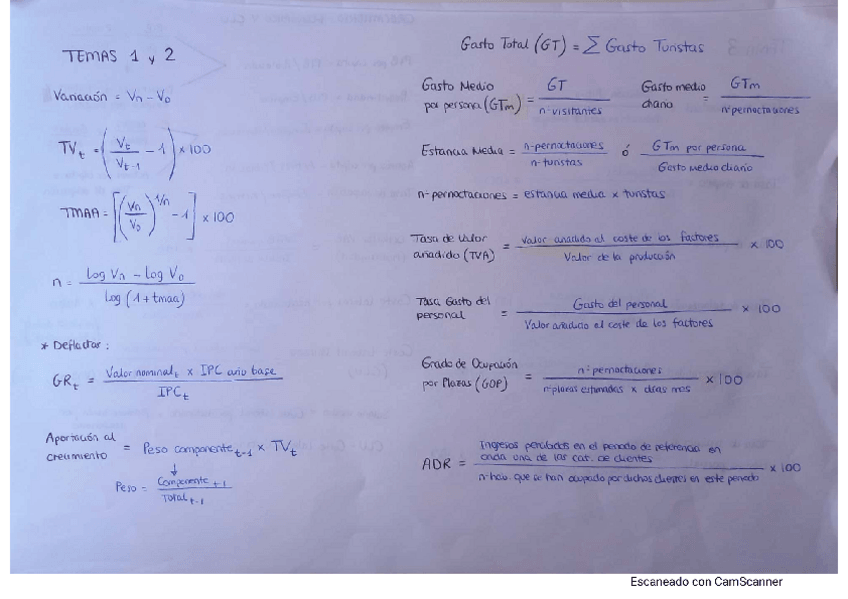 TEMAS 1 y 2
Variación = Vn - V0
TVt = (Vt / Vt-1 - 1) × 100
TMAA = [(Vn / V0)^1/n - 1] × 100
n = Log Vn - Log V0 / Log (1 + tmaa)
* Deflactar:
GRt = Valor nominalt × IPC año base / IPCt
Aportación al crecimiento = Peso componente t-1 × TVt
↓
Peso = Componente t-1 / Total t-1
Gasto Total (GT) = Σ Gasto Turistas
Gasto Medio por persona (GTm) = GT / nº visitantes
Gasto medio diario = GTm / nº pernoctaciones
Estancia Media = nº pernoctaciones / nº turistas ó GTm por persona / Gasto Medio diario
nº pernoctaciones = estancia media × turistas
Tasa de Valor añadido (TVA) = Valor añadido al coste de los factores / Valor de la producción × 100
Tasa Gasto del personal = Gasto del personal / Valor añadido el coste de los factores × 100
Grado de Ocupación por Plazas (GOP) = nº pernoctaciones / nº plazas estimadas × días mes × 100
ADR = Ingresos percibidos en el periodo de referencia en cada una de las cat. de clientes / nº hab. que se han ocupado por dichos clientes en este periodo × 100
Escaneado con CamScanner